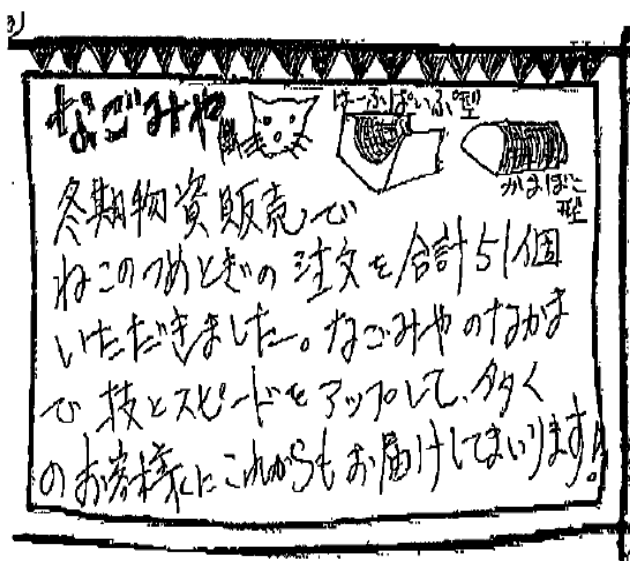 なごみや
はーふぱいぷ型
かまぼこ
型
冬期物資販売で
ねこのつめとぎの注文を合計51個
いただきました。なごみやのなかま
で技とスピードをアップして、多く
のお客様にこれからもお届けしてまいります!